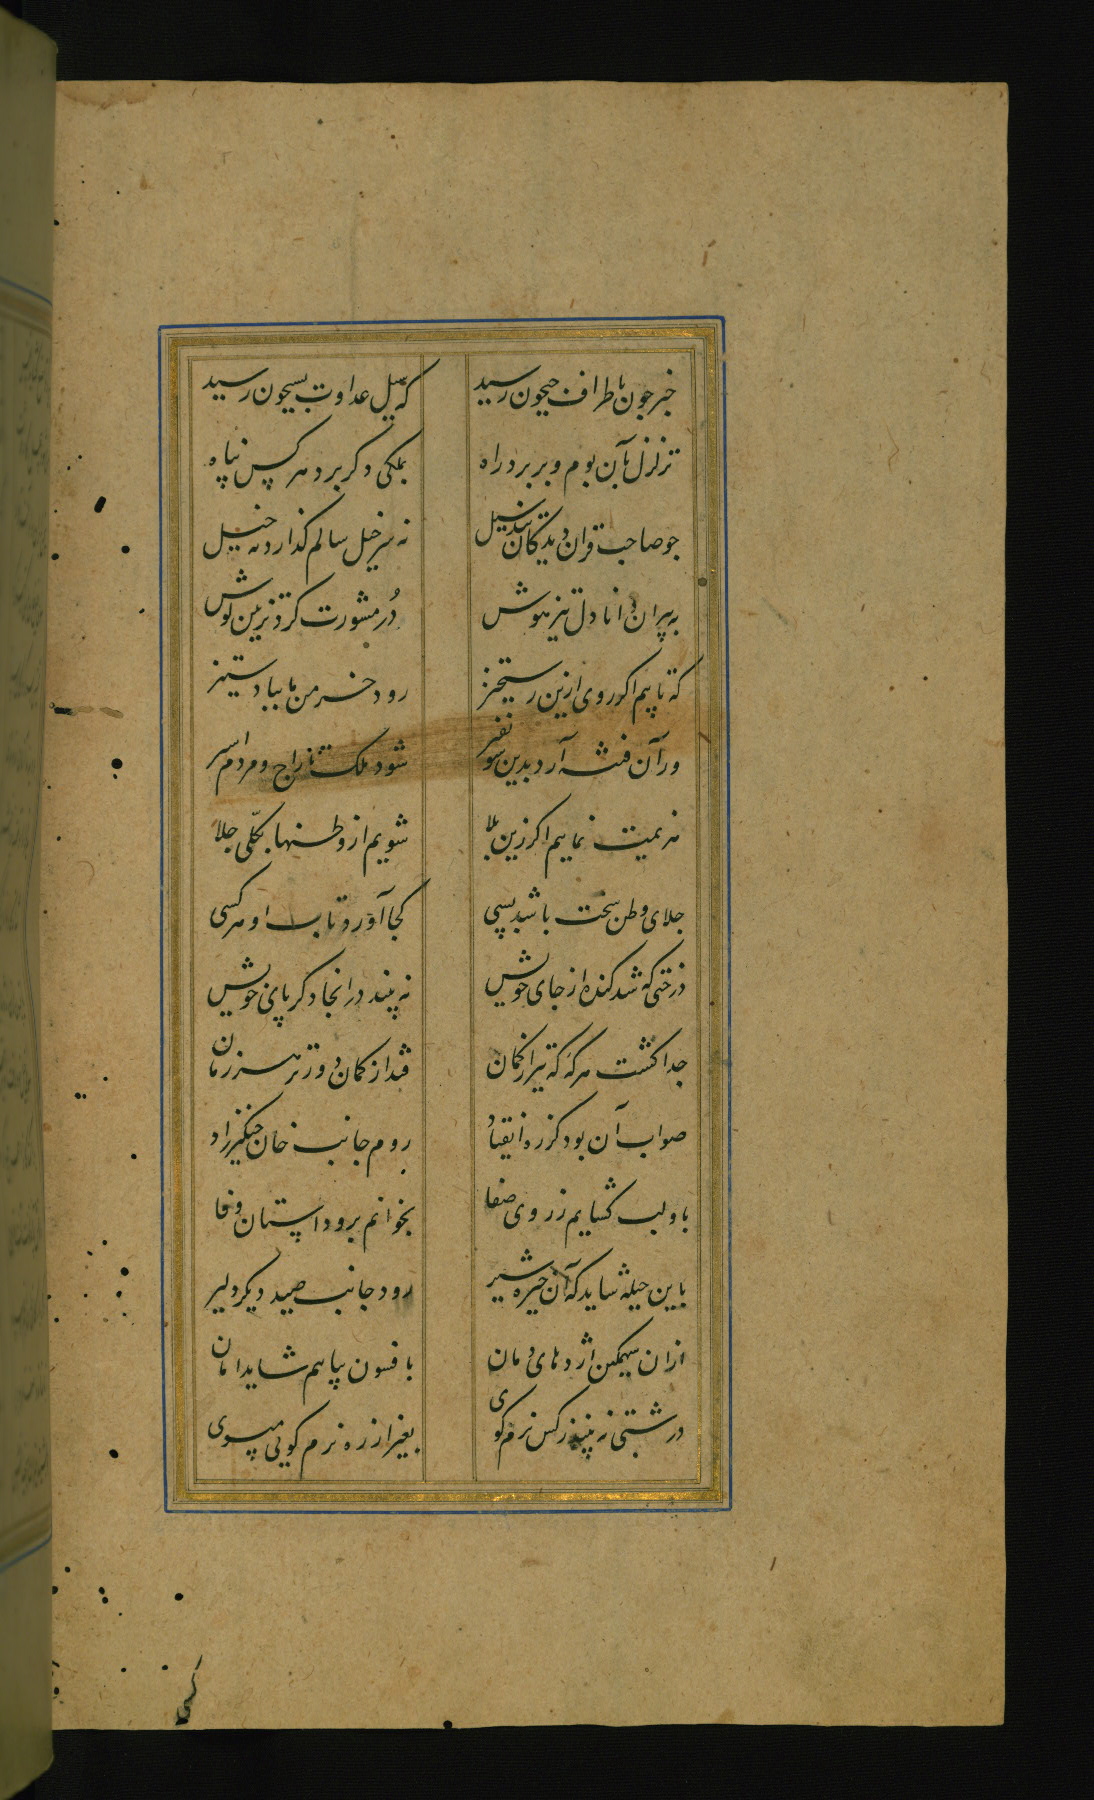 خبر چون باطراف جیحون رسید که سیل عداوت بسیحون رسید
تزلزل بآن بوم و بر برد راه بملکی دکر برد هر کس پناه
جو صاحب قران دید کان تند سیل نه سرخیل سالم کذارد نه خیل
به پیران دانا دل تیز هوش در مشورت کرد زین
که تابیم اکر روی ازین رستخیز رود خرمن ما بباد ستیز
ور آن فتنه آرد بدین سو نفیر شود ملک تاراج و مردم اسیر
هزیمت نماییم اکر زین بلا شویم از وطنها بکلّی جلا
جلای وطن سخت باشد بسی کجا آورد تاب او هر کسی
درختی که شد کنده از جای خویش نه بیند در انجا دکر پای خویش
جدا کشت هر که که تیر از کمان فتد از کمان دورتر هر زمان
صواب آن بود کز ره انقیاد روم جانب خان جنکیز زاد
باو لب کشایم ز روی صفا بخوانم برو داستان وفا
باین حیله شاید که آن خیره شیر رود جانب صید دیکر دلیر
ازان سهمکین اژدهای دمان بافسون بیابم شاید امان
درشتی نه بیند ز کس نرم کوی بغیر از ره نرم کویی مپوی